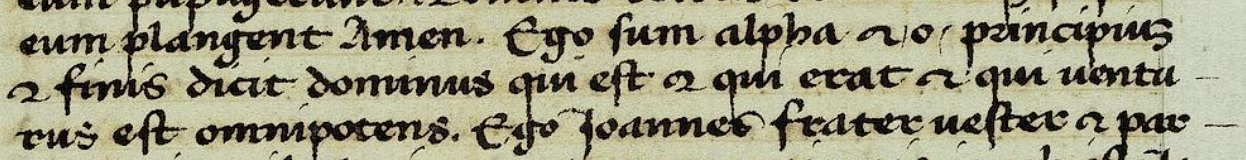 eum plangent Amen. Ego sum alpha & o, principius
& finis dicit dominus qui est & qui erat & qui uentu
rus est omnipotens. Ego Joannes frater uester & par